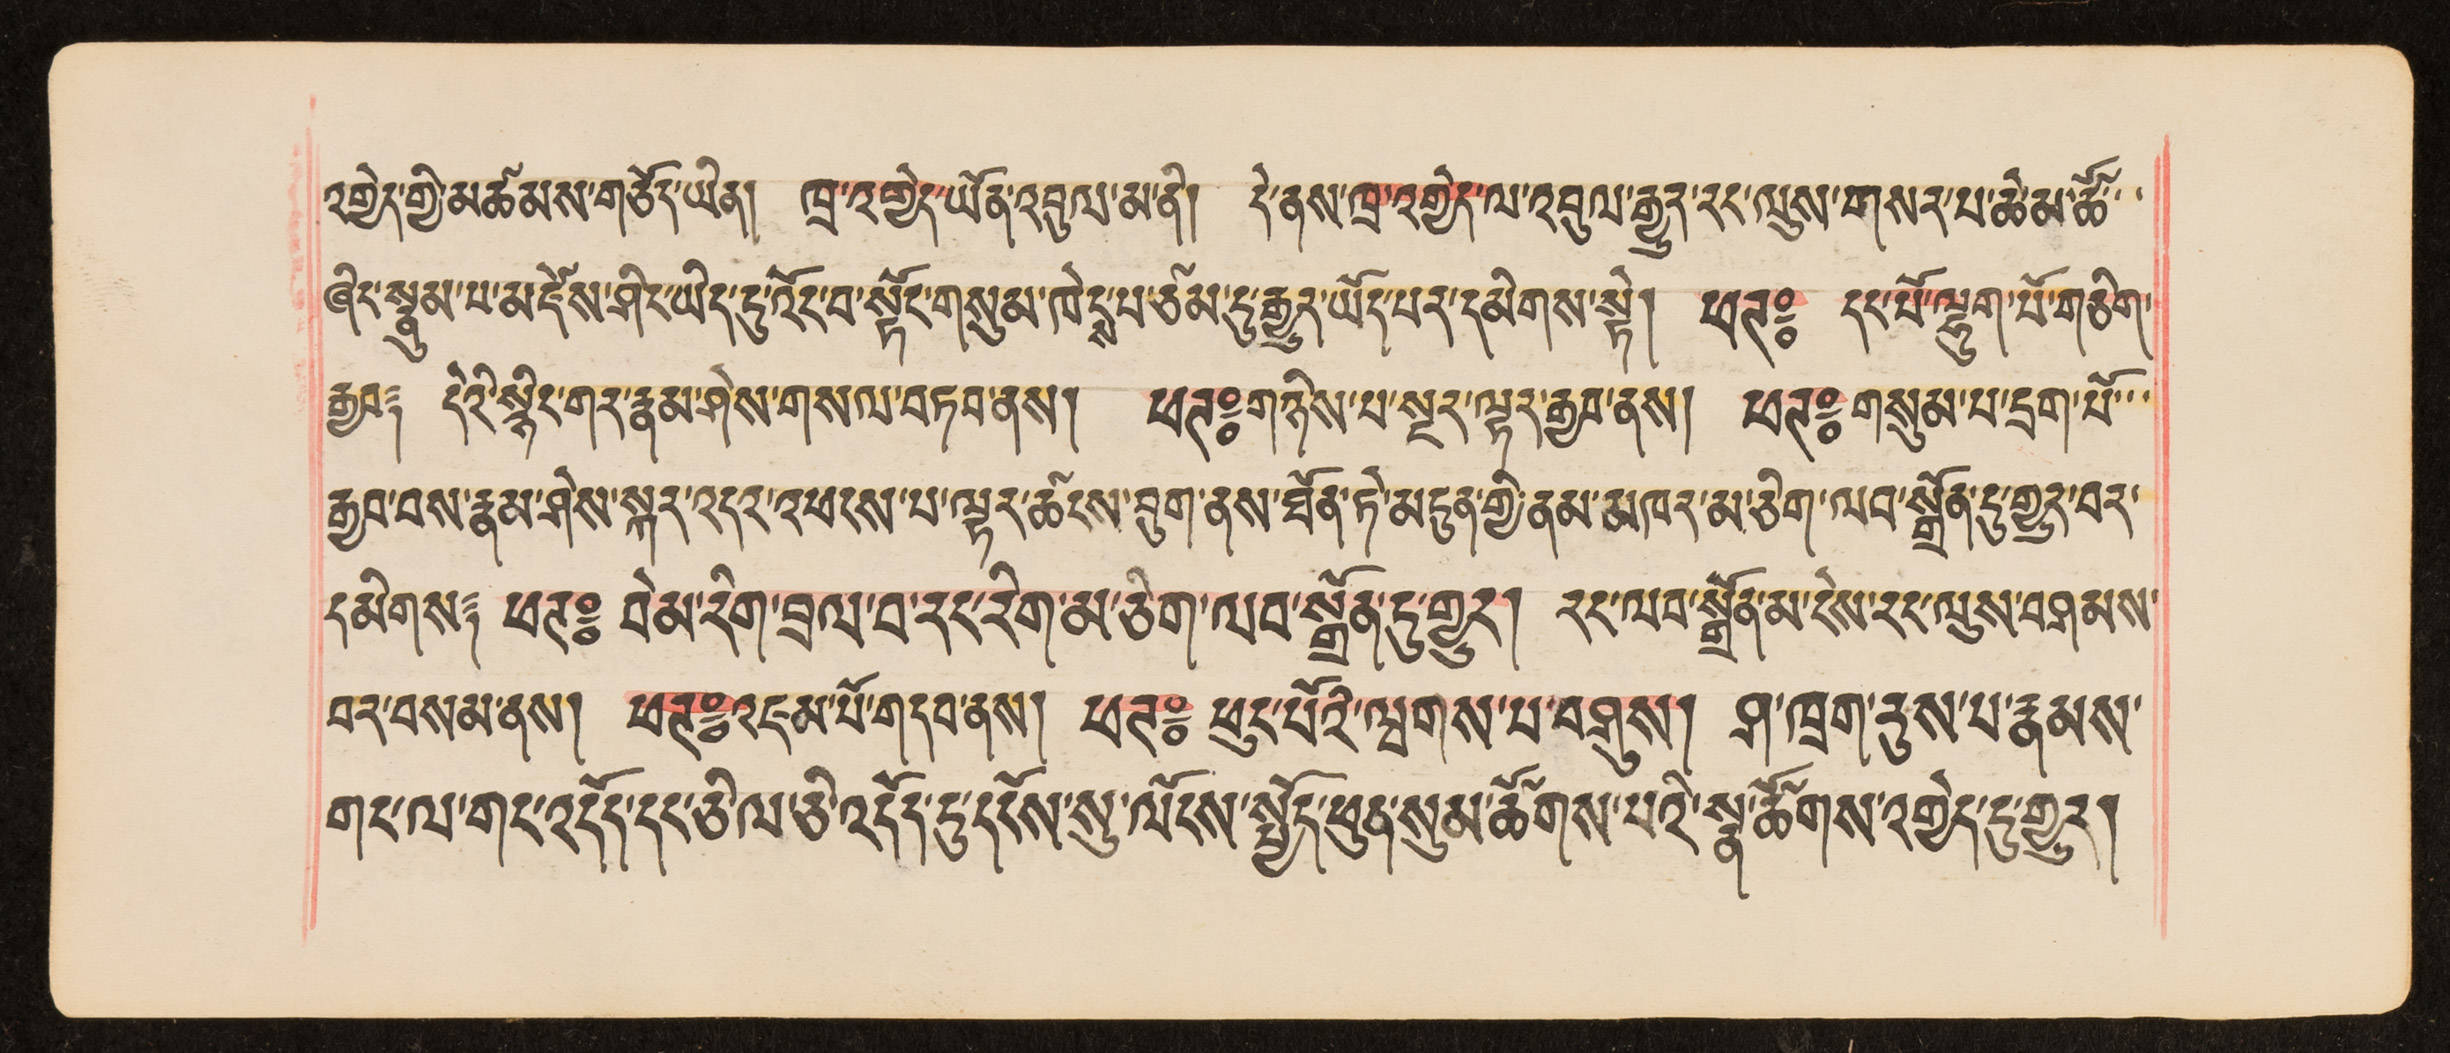 འགྱེད་ཀྱི་མཚམས་གཅོད་ཡིན། ཁྲ་འགྱེད་ཡོན་འབུལ་མ་ནི། དེ་ནས་ཁྲ་འགྱེད་ལ་འབུལ་རྒྱུར་རང་ལུས་གསར་པ་ཆེ་མ་ཚོ་
ཞིང་སྣུམ་པ་མདོས་ཤིང་ཡིད་དུ་འོང་བ་སྟོང་གསུམ་ཁེངས་པ་ཙམ་དུ་རྒྱུར་ཡོད་པར་དམིགས་སྟེ། ཕཊ༔ དང་པོ་ལྷུག་པོ་གཅིག་
རྒྱབ༔ དེའི་སྙིང་གར་རྣམ་ཤེས་གསལ་བཏབ་ནས། ཕཊ༔ གཉིས་པ་སྔར་ལྟར་རྒྱབ་ནས། ཕཊ༔ གསུམ་པ་དྲག་པོ་
རྒྱབ་བས་རྣམ་ཤེས་སྐར་འདར་འཕངས་པ་ལྟར་ཚངས་བུག་ནས་ཐོན་ཏེ་མདུན་གྱི་ནམ་མཁར་མ་ཅིག་ལབ་སྒྲོན་དུ་གྱུར་བར་
དམིགས༔ ཕཊ༔ བེམ་རིག་བྲལ་བ་རང་རིག་མ་ཅིག་ལབ་སྒྲོན་དུ་གྱུར། རང་ལབ་སྒྲོན་མ་ངེས་རང་ལུས་བཤམས་
བར་བསམ་ནས། ཕཊ༔ འཇམ་པོ་གདབ་ནས། ཕཊ༔ ཕུང་པོའི་ལྤགས་པ་བཤུས། ཤ་ཁྲག་རུས་པ་རྣམས་
གང་ལ་གང་འདོད་དང་ཅི་ལ་ཅི་འདོད་དུ་དངོས་སུ་ལོངས་སྤྱོད་ཕུན་སུམ་ཚོགས་པའི་སྣ་ཚོགས་འགྱེད་དུ་གྱུར།